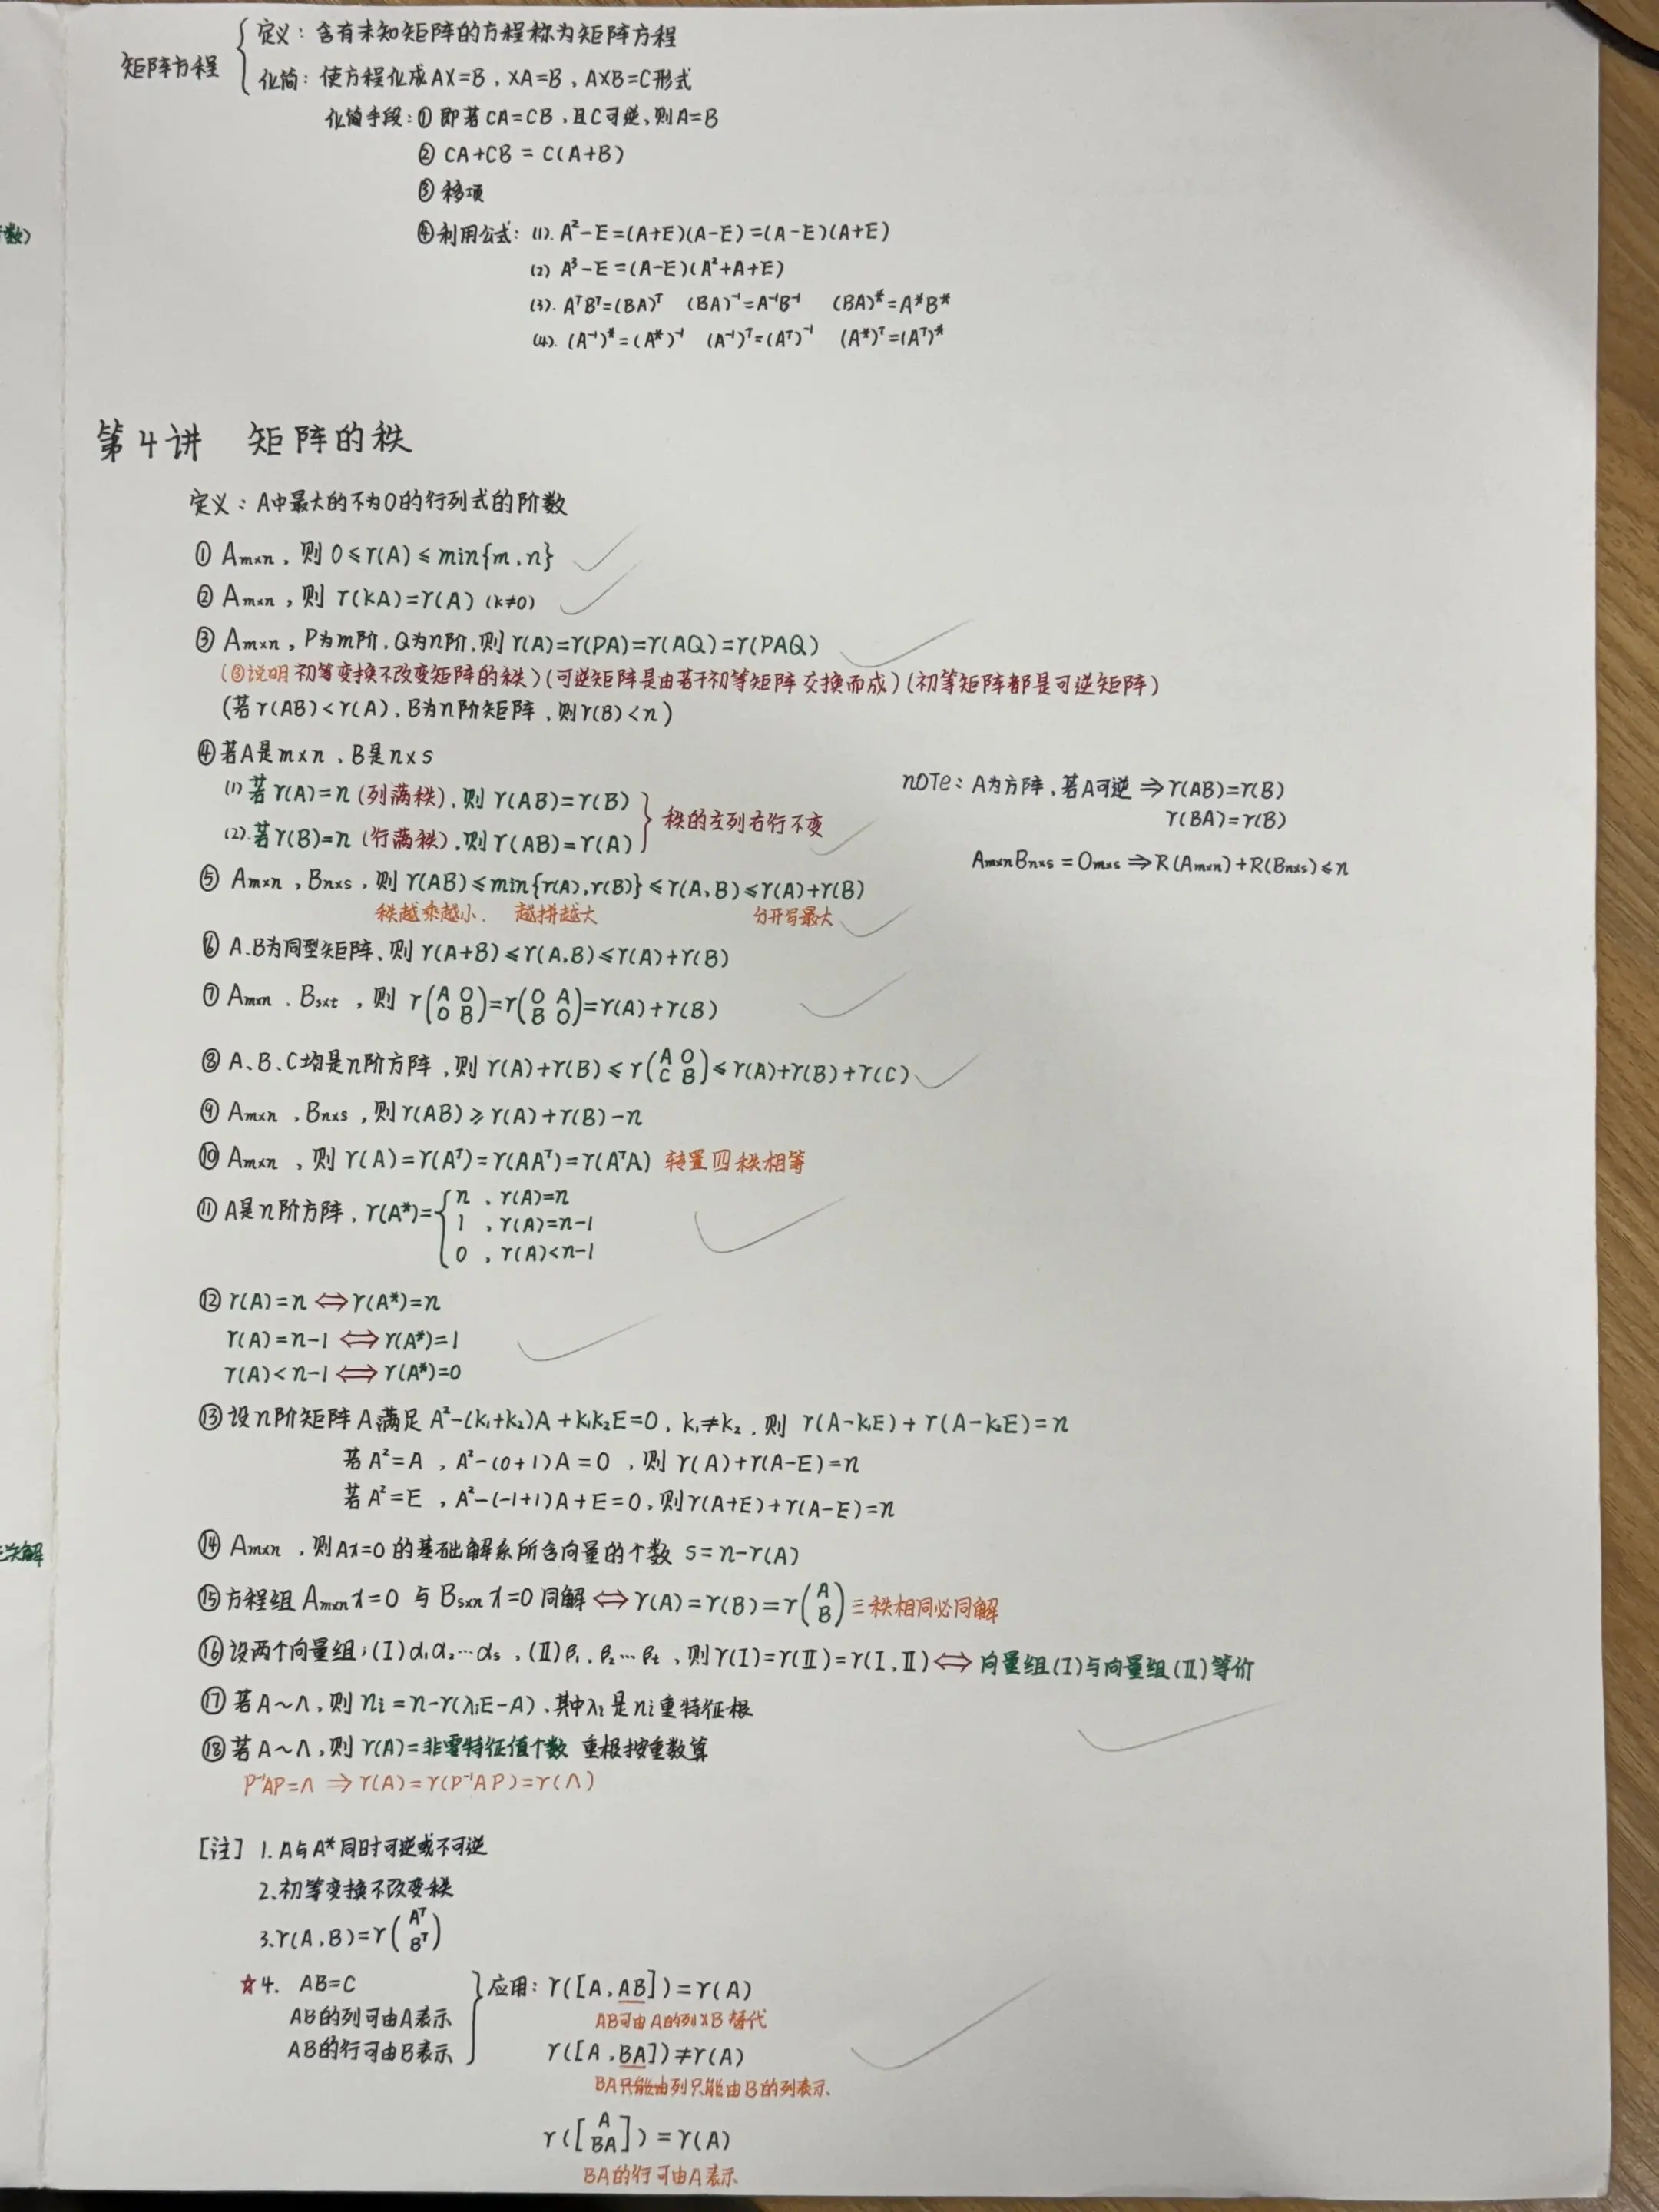 矩阵方程
定义：含有未知矩阵的方程称为矩阵方程
化简：使方程化成AX=B，XA=B，AXB=C形式
化简手段：① 即若CA=CB，且C可逆，则A=B
② CA+CB=C(A+B)
③ 移项
④利用公式：(1). A²-E=(A+E)(A-E)=(A-E)(A+E)
(2) A³-E=(A-E)(A²+A+E)
(3). AᵀBᵀ=(BA)ᵀ (BA)⁻¹=A⁻¹B⁻¹ (BA)*=A*B*
(4). (A⁻¹)*=(A*)⁻¹ (A⁻¹)ᵀ=(Aᵀ)⁻¹ (A*)ᵀ=(Aᵀ)*
数)
第4讲 矩阵的秩
定义：A中最大的不为0的行列式的阶数
① Am×n，则 0≤r(A)≤min{m,n}
② Am×n，则 r(kA)=r(A) (k≠0)
③ Am×n，P为m阶，Q为n阶，则 r(A)=r(PA)=r(AQ)=r(PAQ)
(③说明初等变换不改变矩阵的秩)(可逆矩阵是由若干初等矩阵交换而成)(初等矩阵都是可逆矩阵)
(若r(AB)<r(A)，B为n阶矩阵，则r(B)<n)
④若A是m×n，B是n×s
(1) 若r(A)=n (列满秩)，则 r(AB)=r(B)
(2).若r(B)=n (行满秩)，则r(AB)=r(A)
秩的左列右行不变
note：A为方阵，若A可逆⇒r(AB)=r(B)
r(BA)=r(B)
Am×nBn×s=Om×s⇒R(Am×n)+R(Bn×s)≤n
⑤ Am×n，Bn×s，则 r(AB)≤min{r(A),r(B)}≤r(A,B)≤r(A)+r(B)
秩越乘越小. 越拼越大 分开写最大
⑥ A.B为同型矩阵，则 r(A+B)≤r(A,B)≤r(A)+r(B)
⑦ Am×n、Bs×t，则 r(A O; O B)=r(O A; B O)=r(A)+r(B)
⑧ A、B、C均是n阶方阵，则 r(A)+r(B)≤r(A O; C B)≤r(A)+r(B)+r(C)
⑨ Am×n，Bn×s，则r(AB)≥r(A)+r(B)-n
⑩ Am×n，则 r(A)=r(Aᵀ)=r(AAᵀ)=r(AᵀA) 转置四秩相等
⑪ A是n阶方阵，r(A*)={ n，r(A)=n
1，r(A)=n-1
0，r(A)<n-1
⑫ r(A)=n⇔r(A*)=n
r(A)=n-1⇔r(A*)=1
r(A)<n-1⇔r(A*)=0
⑬设n阶矩阵A满足 A²-(k₁+k₂)A+k₁k₂E=0，k₁≠k₂，则 r(A-k₁E)+r(A-k₂E)=n
若A²=A，A²-(0+1)A=0，则 r(A)+r(A-E)=n
若A²=E，A²-(-1+1)A+E=0，则r(A+E)+r(A-E)=n
⑭ Am×n，则Ax=0的基础解系所含向量的个数 s=n-r(A)
三次解
⑮方程组 Am×n x=0 与 Bs×n x=0 同解⇔r(A)=r(B)=r(A; B) 三秩相同必同解
⑯设两个向量组：(Ⅰ)α₁α₂…αs，(Ⅱ)β₁，β₂…βt，则r(Ⅰ)=r(Ⅱ)=r(Ⅰ,Ⅱ)⇔向量组(Ⅰ)与向量组(Ⅱ)等价
⑰若A~Λ，则 ni=n-r(λiE-A)，其中λi是ni重特征根
⑱若A~Λ，则 r(A)=非零特征值个数 重根按重数算
P⁻¹AP=Λ⇒r(A)=r(P⁻¹AP)=r(Λ)
[注] 1. A与A*同时可逆或不可逆
2、初等变换不改变秩
3.r(A,B)=r(Aᵀ; Bᵀ)
☆4. AB=C
AB的列可由A表示
AB的行可由B表示
应用：r([A,AB])=r(A)
AB可由A的列XB替代
r([A,BA])≠r(A)
列只能由B的列表示.
r([A; BA])=r(A)
BA的行可由A表示